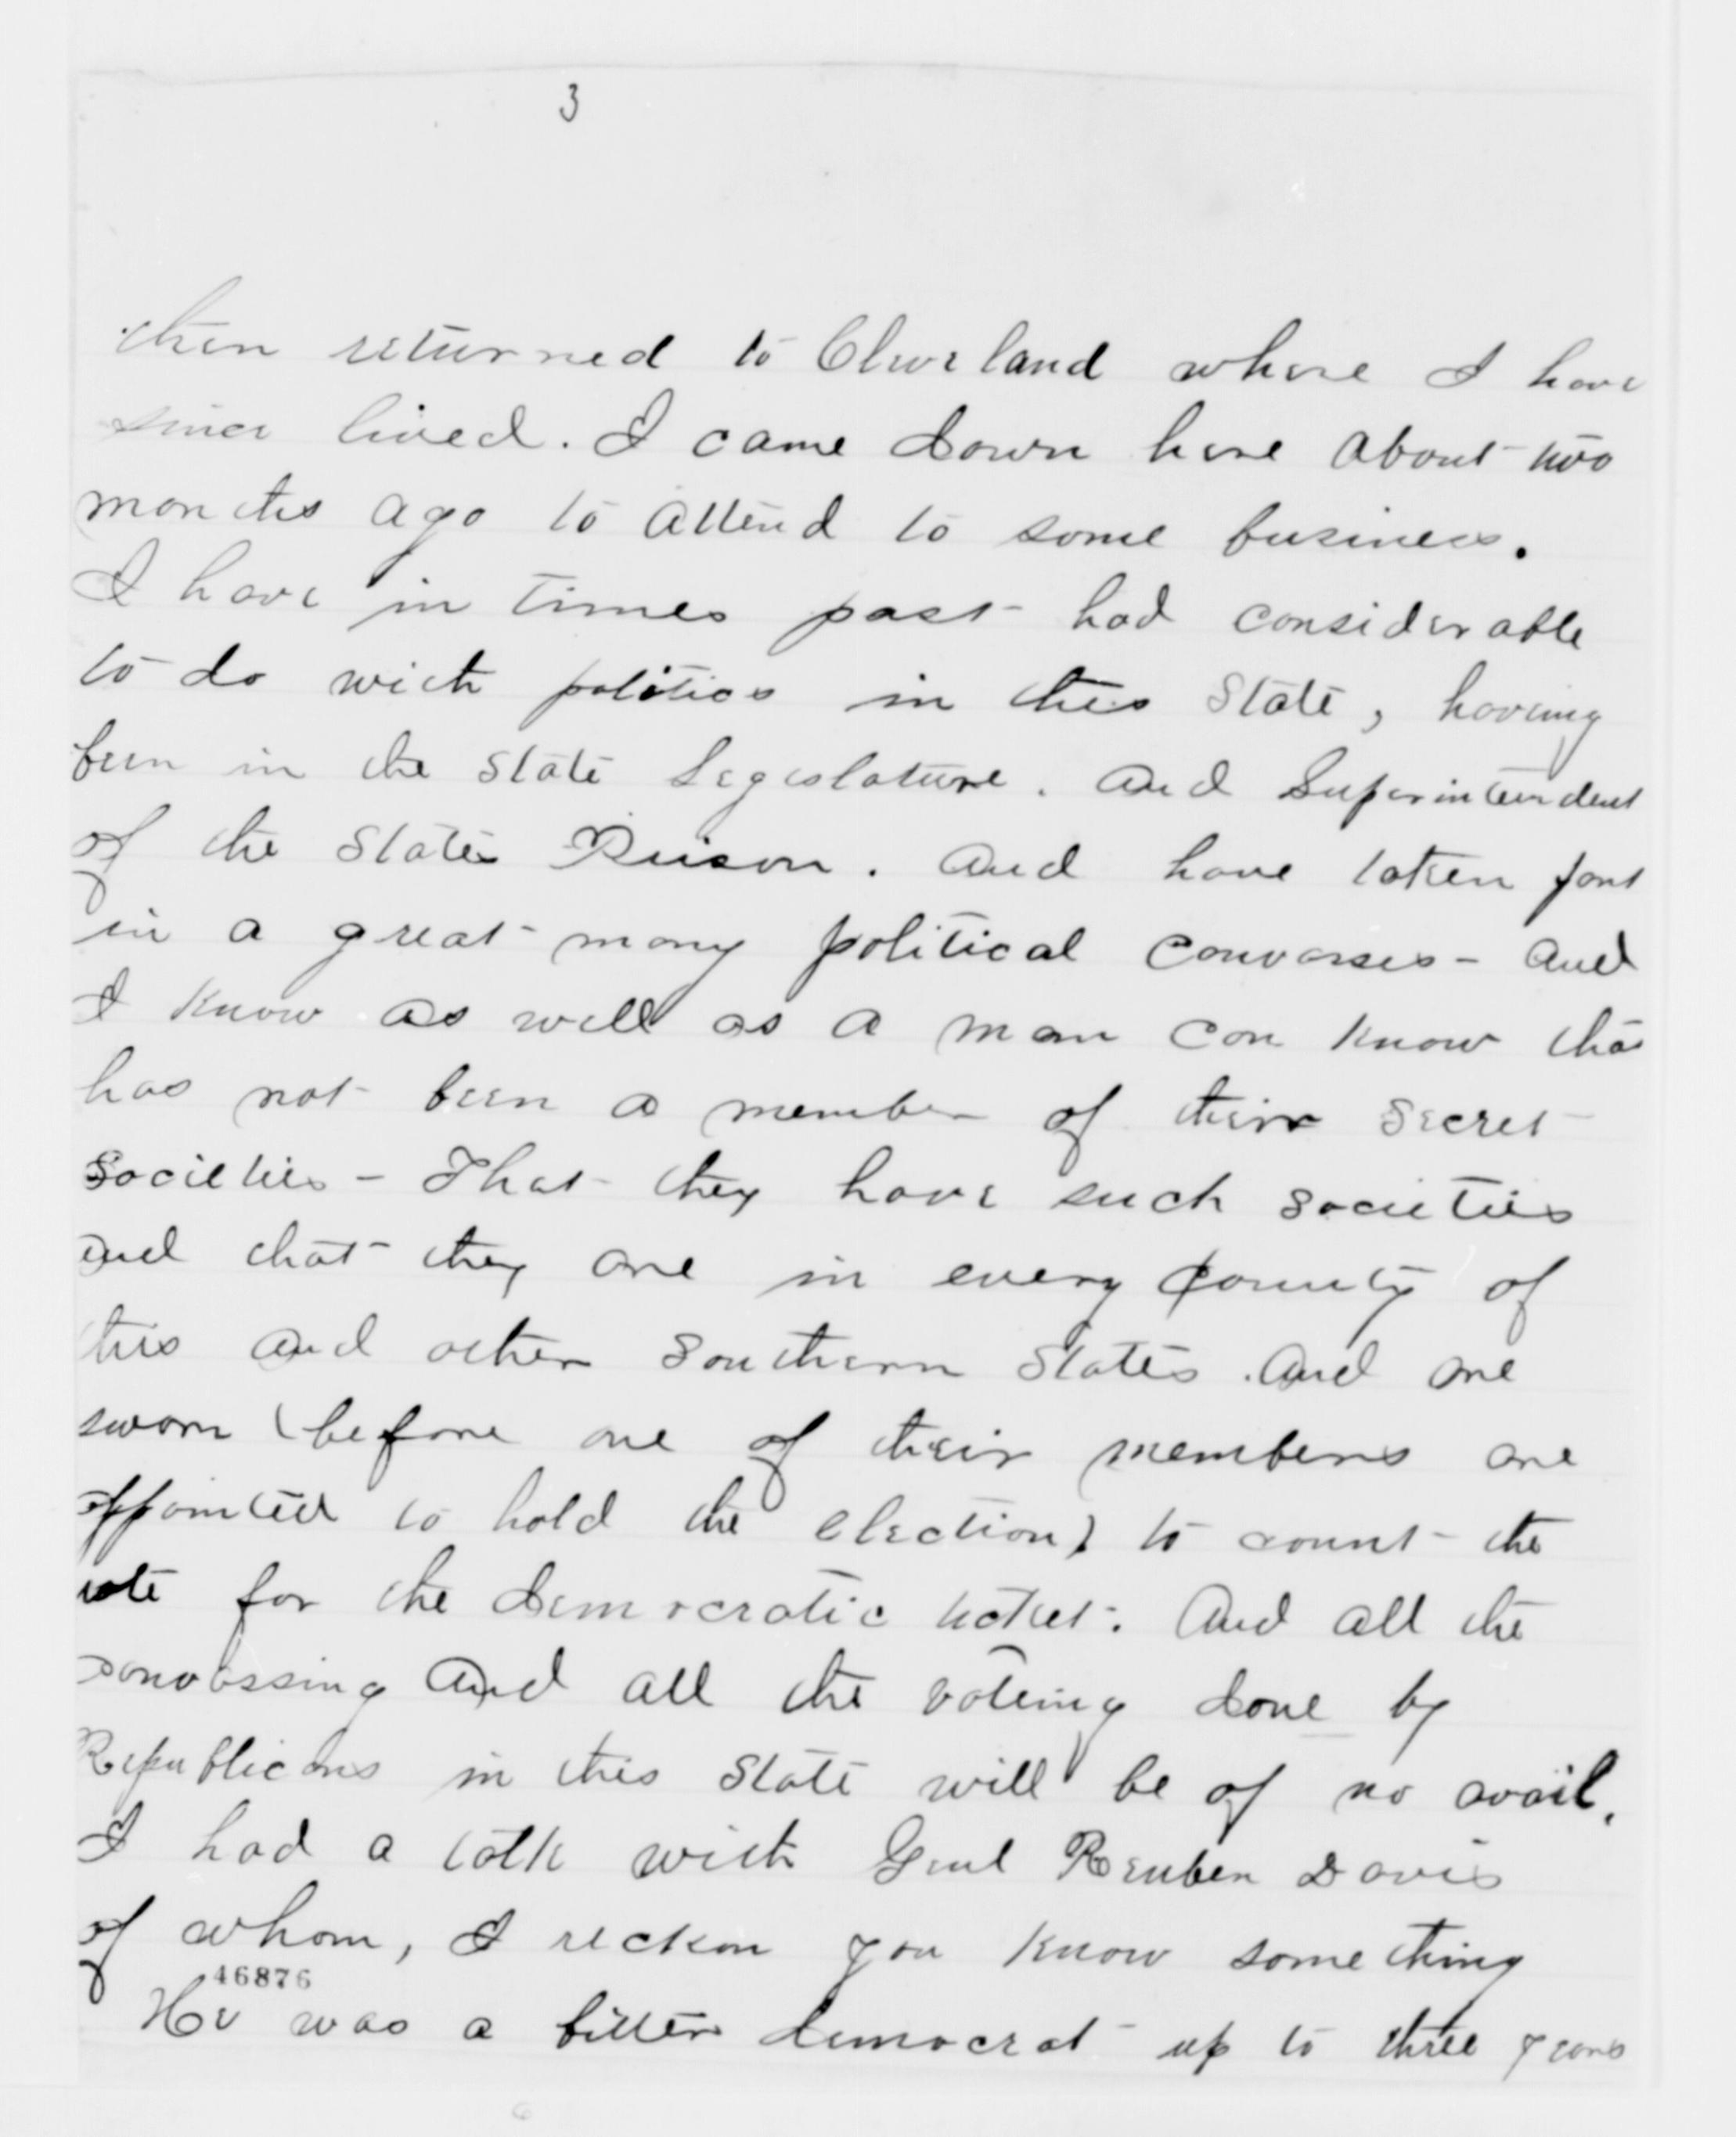 3
then returned to Cleveland where I have
since lived. I came down here about two
months ago to attend to some business.
I have in times past had considerable
to do with politics in this State, having
been in the State Legislature. And Superintendent
of the States Prison. And have taken part
in a great many political canvasses - And
I know as well as a man can know that
has not been a member of their Secret
Societies - That they have such societies
and that they are in every County of
this and other Southern States. And are
sworn (before one of their members are
appointed to hold the election) to count the
vote for the democratic ticket. And all the
canvassing And all the voting done by
Republicans in this State will be of no avail.
I had a talk with Genl Reuben Davis
of whom, I reckon you know something
46876
He was a bitter democrat up to three years